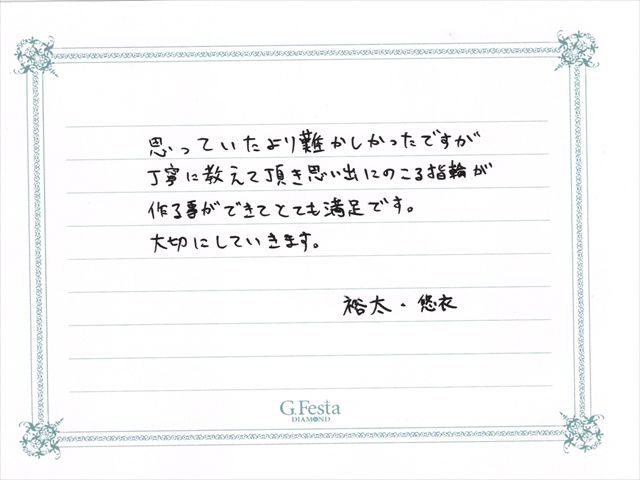 思っていたより難かしかったですが
丁寧に教えて頂き思い出にのこる指輪が
作る事ができてとても満足です。
大切にしていきます。
裕太・悠衣
G.Festa
DIAMOND